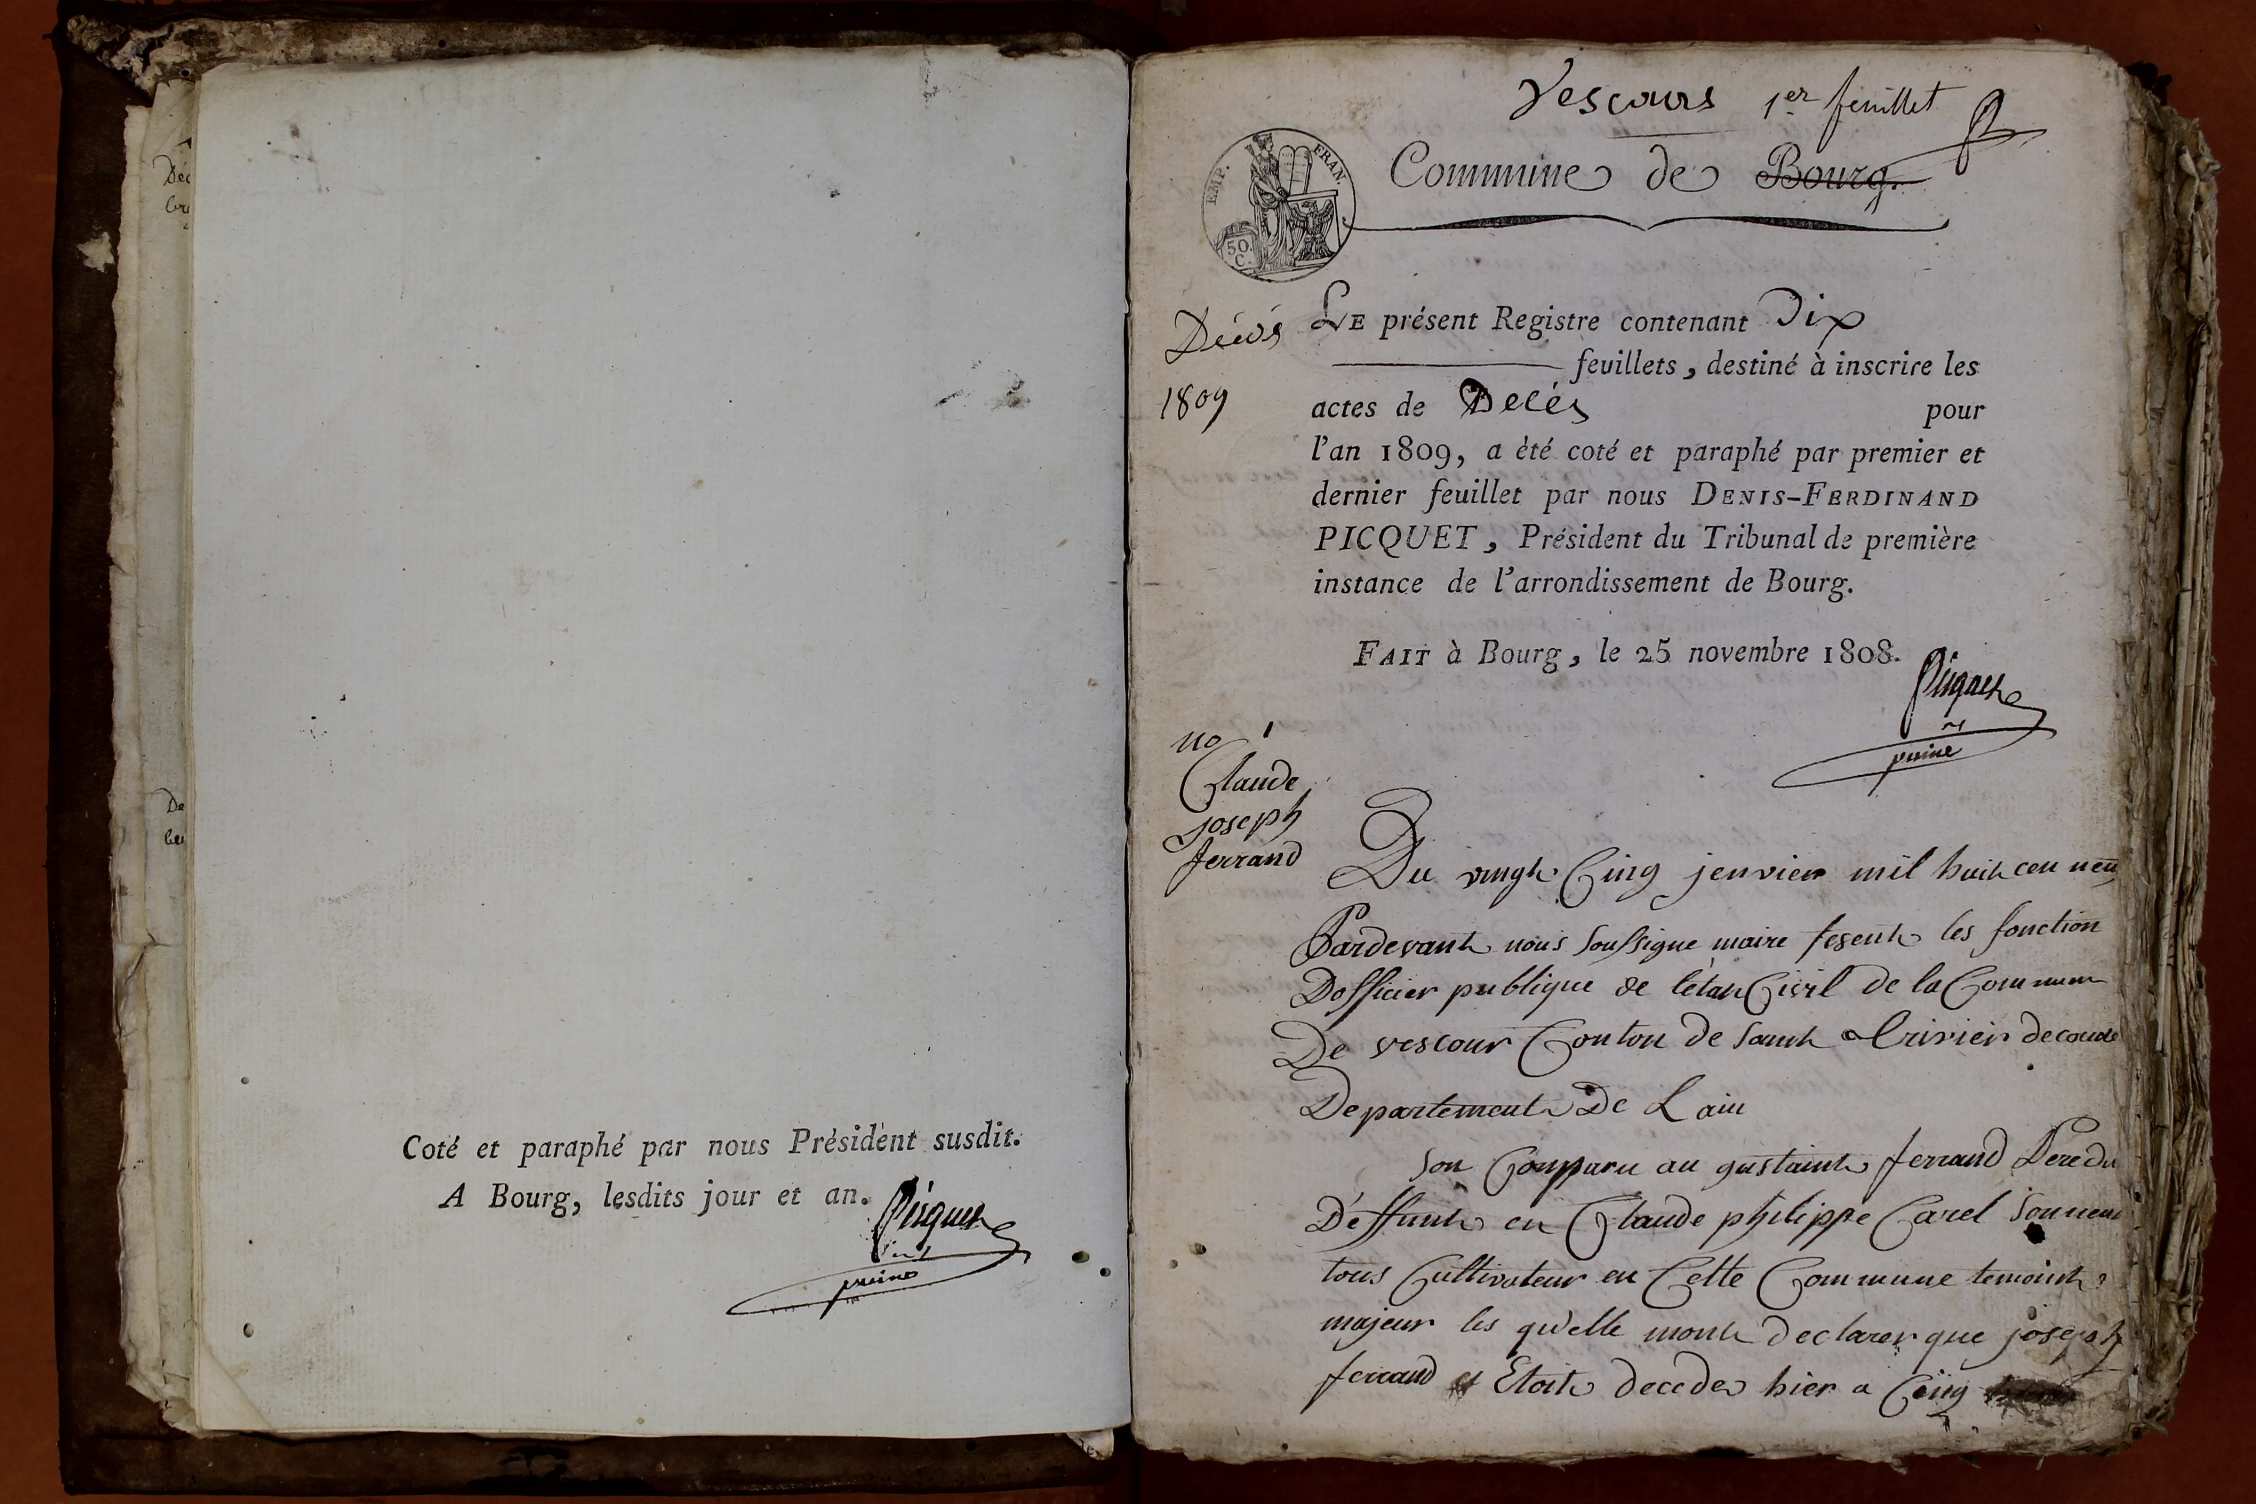 Déc
Coté et paraphé par nous Président susdit.
A Bourg, lesdits jour et an.
Picquet
Vescours 1er feuillet
EMP. FRAN.
50.
C.
Commune de Bourg.
Décès
1809
LE présent Registre contenant Dix
feuillets, destiné à inscrire les
actes de Décès pour
l'an 1809, a été coté et paraphé par premier et
dernier feuillet par nous DENIS-FERDINAND
PICQUET, Président du Tribunal de première
instance de l'arrondissement de Bourg.
FAIT à Bourg, le 25 novembre 1808.
Picquet
no 1
Claude
joseph
ferrand
Du vingt Cinq jenvier mil huit cen neu
Pardevant nous soussigne maire fesent les fonction
Dofficier publique de létat Civil de la Commune
De vescour Conton de saint trivier de
Departement De Lain
son Comparu au gustaint ferrand Pere du
Deffunt en Claude philippe Carel
tous Cultivateur en Cette Commune temoint
majeur les qu'elle mont declarer que joseph
ferrand Etoit decede hier a Cinq